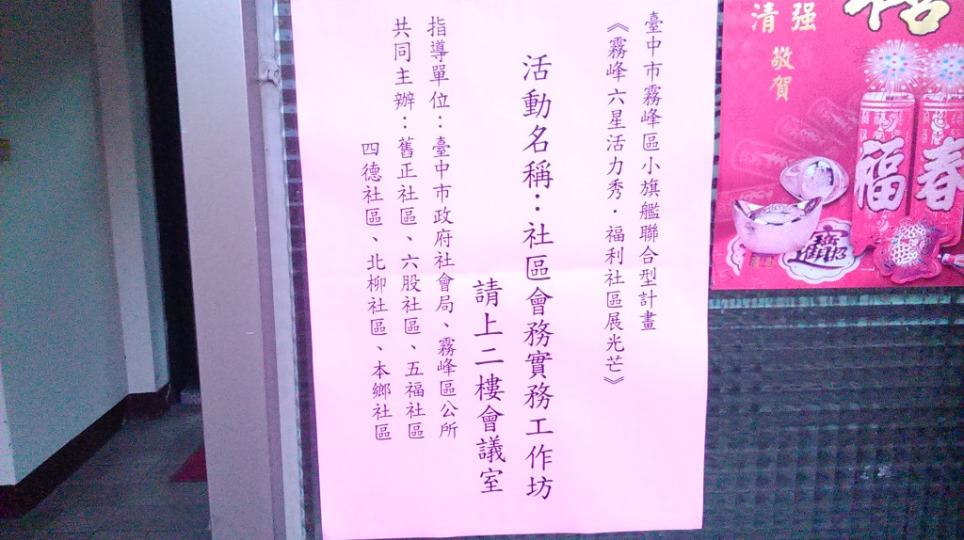 臺中市霧峰區小旗艦聯合型計畫
《霧峰六星活力秀．福利社區展光芒》
活動名稱：社區會務實務工作坊
請上二樓會議室
指導單位：臺中市政府社會局、霧峰區公所
共同主辦：舊正社區、六股社區、五福社區
四德社區、北柳社區、本鄉社區
强
清
敬賀
春
福